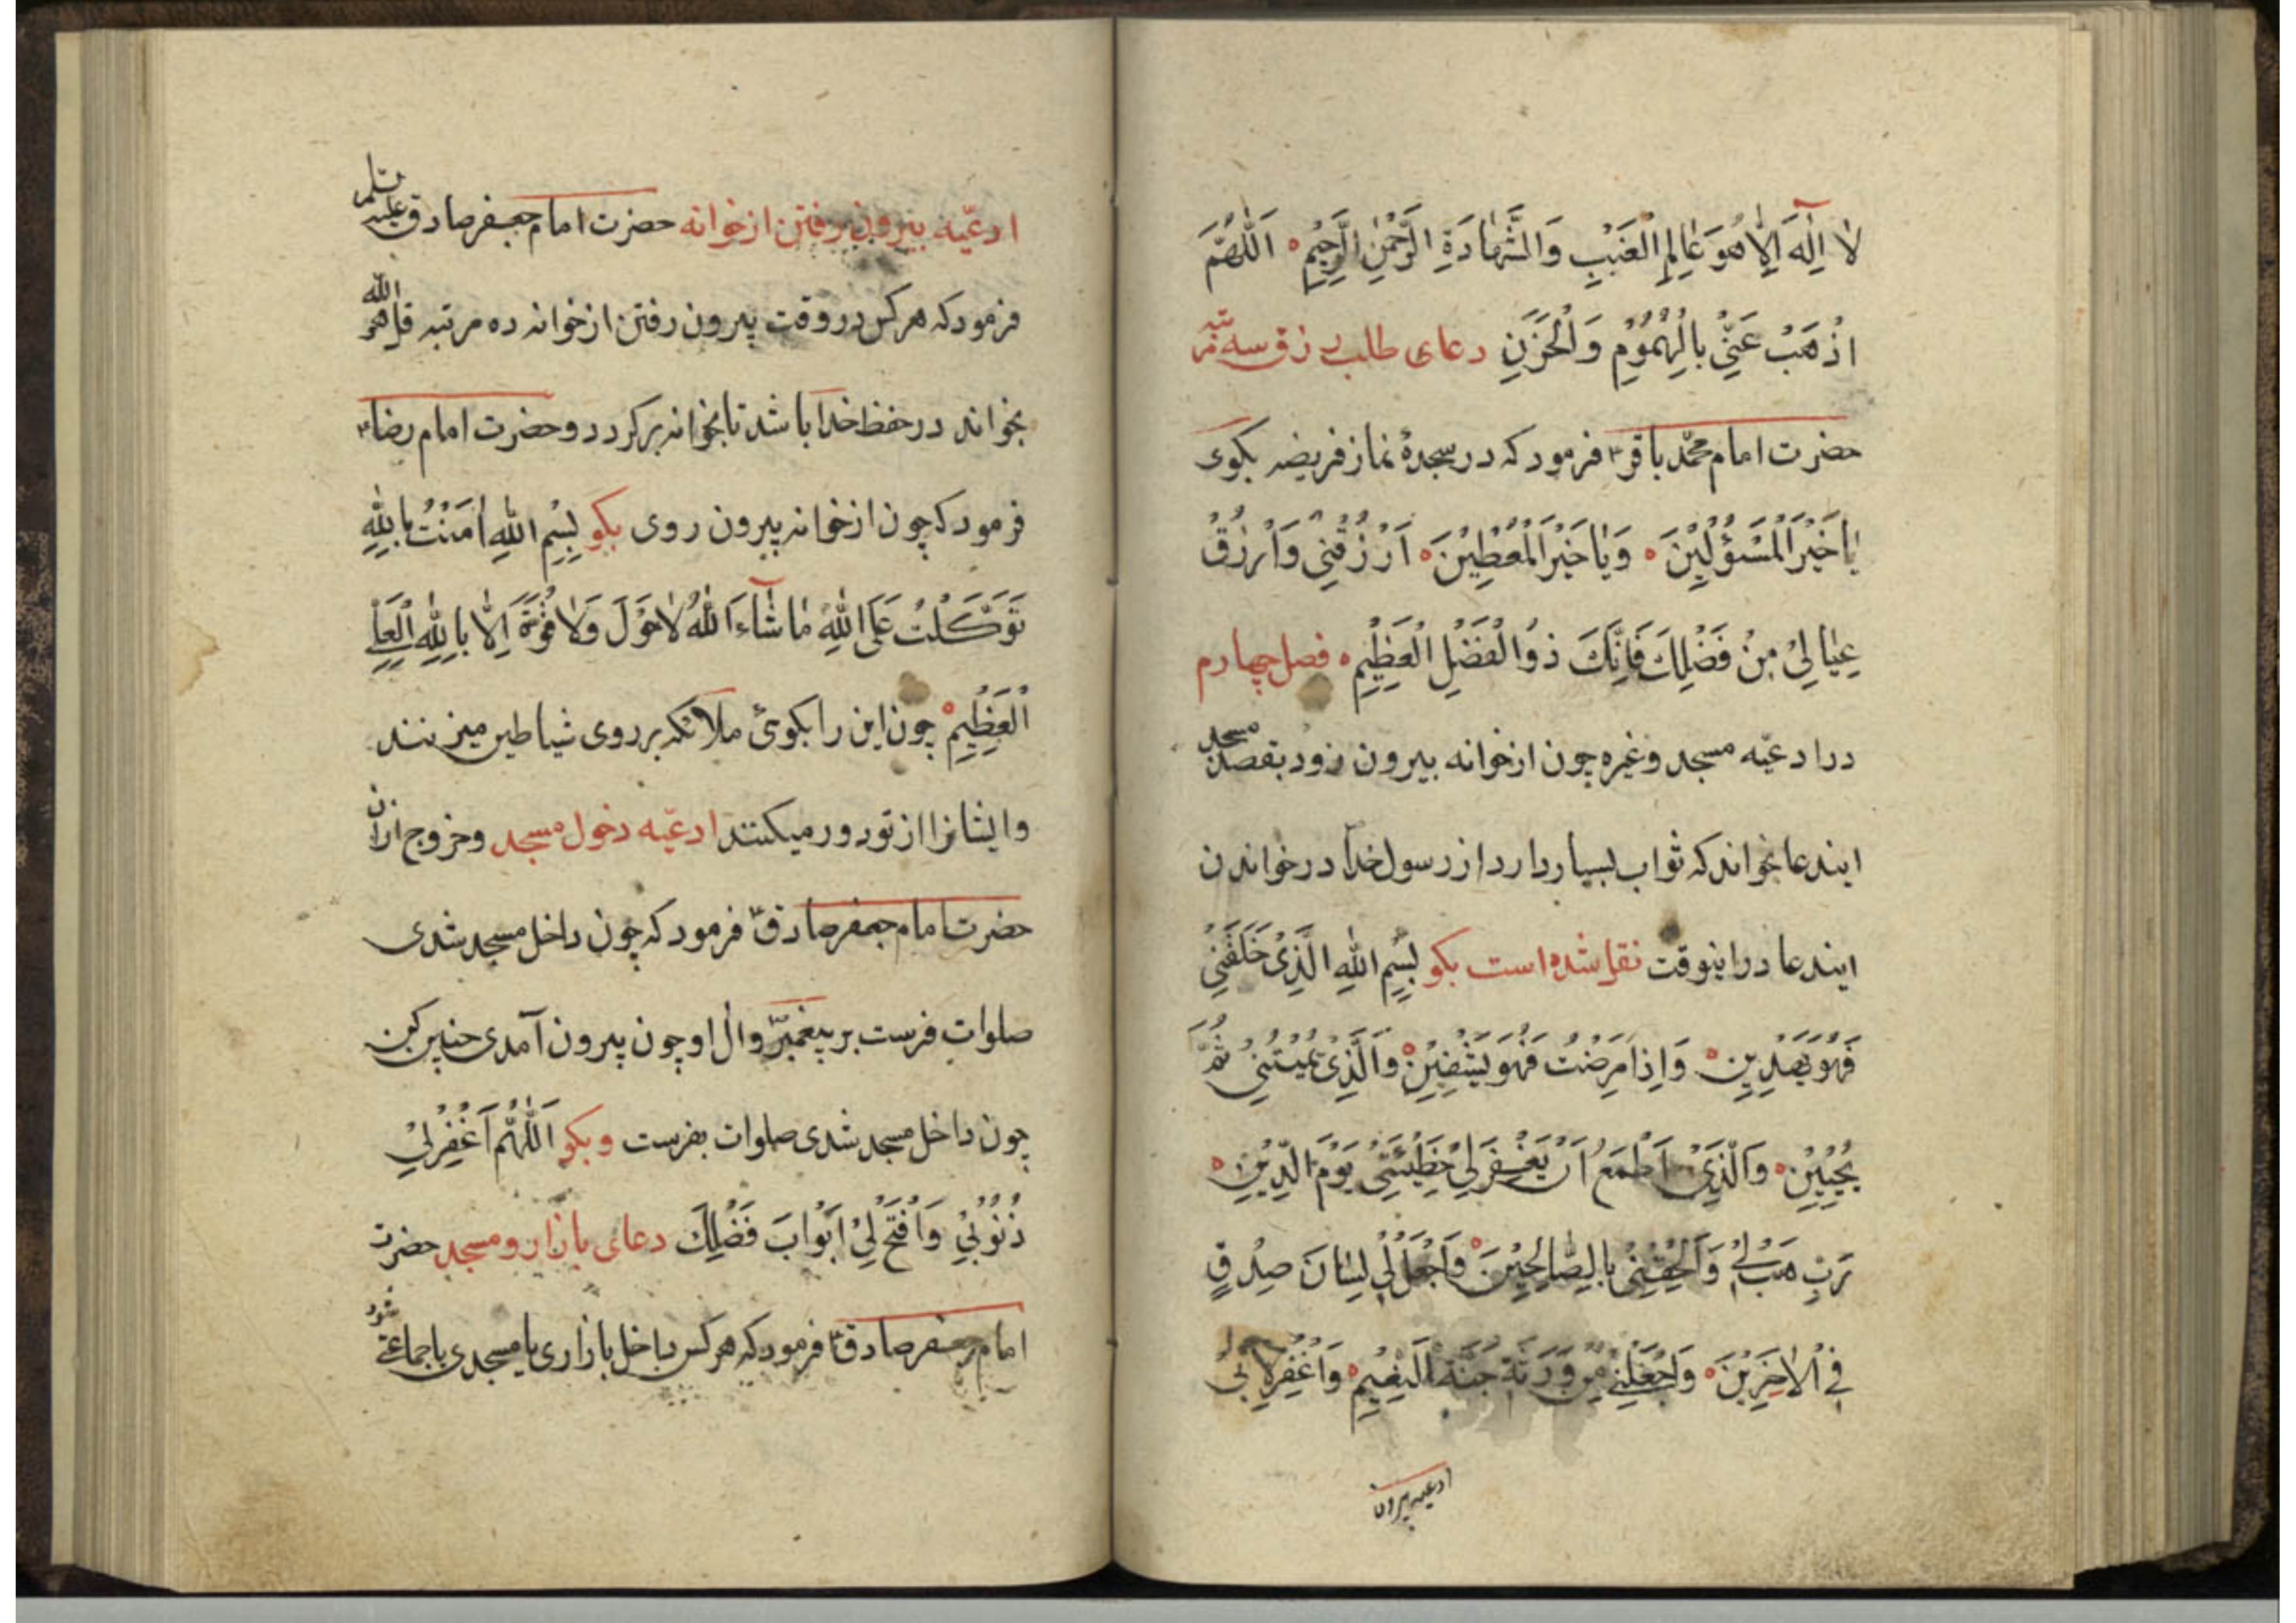 لَا اِلٰهَ اِلَّا هُوَ عَالِمِ الْغَيْبِ وَالشَّهَادَةِ الرَّحْمٰنِ الرَّحِيْمِ اَللّٰهُمَّ
اِذْهَبْ عَنِّيْ بِالْهُمُوْمِ وَالْحَزَنِ دعای طلب رزق سه مرتبه
حضرت امام محمّد باقر ع فرمود که در سجدهٔ نماز فریضه بکوی
يَا خَيْرَ الْمَسْؤُلِيْنَ وَيَا خَيْرَ الْمُعْطِيْنَ اَرْزُقْنِيْ وَاَرْزُقْ
عِيَالِيْ مِنْ فَضْلِكَ فَاِنَّكَ ذُوْالْفَضْلِ الْعَظِيْمِ فصل چهارم
در ادعیّه مسجد وغیره چون از خوانه بیرون رود بقصد مسجد
ایندعا بخواند که ثواب بسیار دارد از رسول خدا در خواندن
ایندعا در اینوقت نقل شده است بکو بِسْمِ اللّٰهِ الَّذِيْ خَلَقَنِيْ
فَهُوَ يَهْدِيْنِ وَاِذَا مَرِضْتُ فَهُوَ يَشْفِيْنِ وَالَّذِيْ يُمِيْتُنِيْ ثُمَّ
يُحْيِيْنِ وَالَّذِيْ اَطْمَعُ اَنْ يَغْفِرَ لِيْ خَطِيْئَتِيْ يَوْمَ الدِّيْنِ
رَبِّ هَبْ لِيْ وَاَلْحِقْنِيْ بِالصَّالِحِيْنَ وَاجْعَلْ لِيْ لِسَانَ صِدْقٍ
فِي الْاٰخِرِيْنَ وَاجْعَلْنِيْ مِنْ وَرَثَةِ جَنَّةِ النَّعِيْمِ وَاغْفِرْ لِاَبِيْ
ادعیه بیرون
ادعیّه بیرون رفتن از خوانه حضرت امام جعفر صادق علیه السلام
فرمود که هر کس در وقت بیرون رفتن از خوانه ده مرتبه قل هو الله
بخواند در حفظ خدا باشد تا بخوانه برکردد وحضرت امام رضا ع
فرمود که چون از خوانه بیرون روی بکو بِسْمِ اللّٰهِ اٰمَنْتُ بِاللّٰهِ
تَوَكَّلْتُ عَلَى اللّٰهِ مَا شَآءَ اللّٰهُ لَا حَوْلَ وَلَا قُوَّةَ اِلَّا بِاللّٰهِ الْعَلِيِّ
الْعَظِيْمِ چون این را بکوئ ملائکه بر روی شیاطین میزنند
وایشانرا از تو دور میکنند ادعیّه دخول مسجد وخروج ازان
حضرت امام جعفر صادق ع فرمود که چون داخل مسجد شدی
صلوات فرست بر پیغمبر وال او چون بیرون آمدی چنین کن
چون داخل مسجد شدی صلوات بفرست وبکو اَللّٰهُمَّ اَغْفِرْلِيْ
ذُنُوْبِيْ وَاَفْتَحْ لِيْ اَبْوَابَ فَضْلِكَ دعای بازار ومسجد حضرت
امام جعفر صادق ع فرمود که هر کس داخل بازاری یا مسجدی یا جماعتی شود